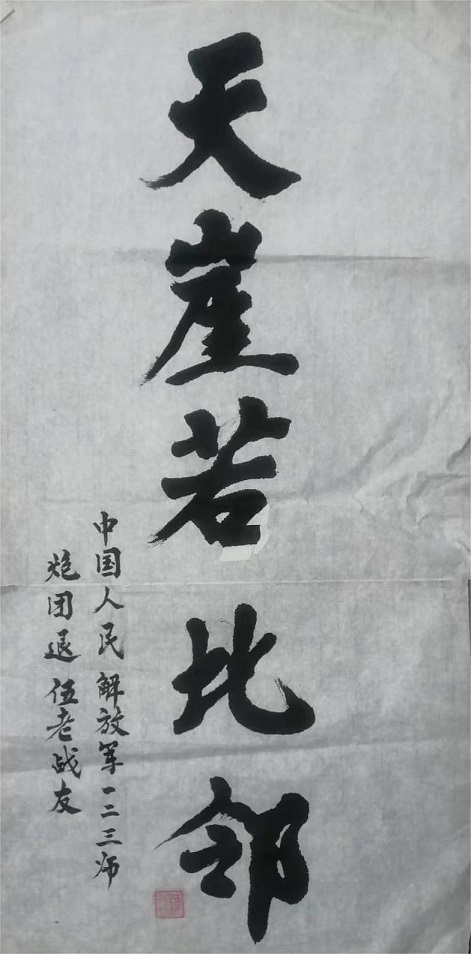 天崖若比邻
中国人民解放军一二三师
炮团退伍老战友